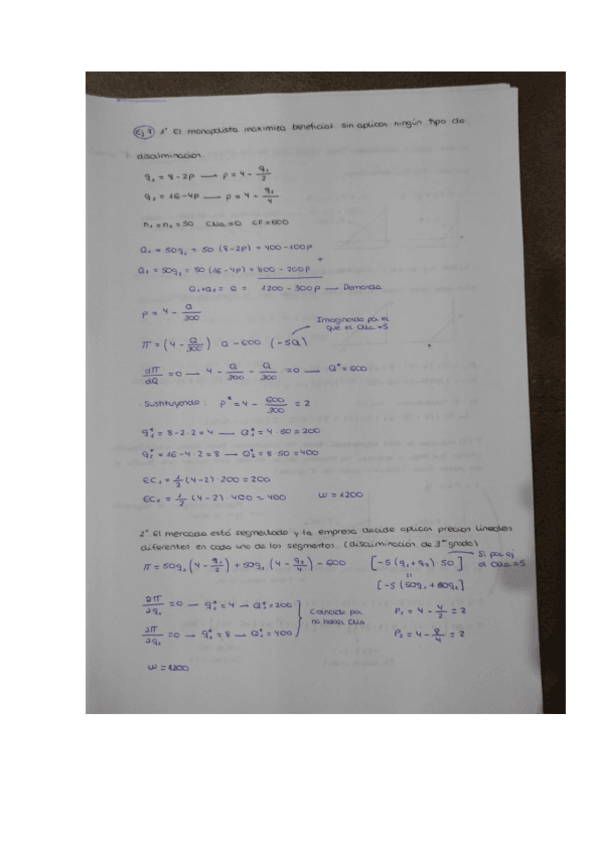 Ej 7 1º El monopolista maximiza beneficios sin aplicar ningún tipo de
discriminación.
q₁ = 8 - 2p → p = 4 - q₁/2
q₂ = 16 - 4p → p = 4 - q₂/4
n₁ = n₂ = 50 CMa = 0 CF = 600
Q₁ = 50q₁ = 50 (8 - 2p) = 400 - 100p
+
Q₂ = 50q₂ = 50 (16 - 4p) = 800 - 200p
Q₁+Q₂ = Q = 1200 - 300p → Demanda
p = 4 - Q/300
Imaginando por ej
que el CMa = 5
π = (4 - Q/300) Q - 600 (-5Q)
dπ/dQ = 0 → 4 - Q/300 - Q/300 = 0 → Q* = 600
Sustituyendo: p* = 4 - 600/300 = 2
q₁* = 8 - 2·2 = 4 → Q₁* = 4·50 = 200
q₂* = 16 - 4·2 = 8 → Q₂* = 8·50 = 400
EC₁ = 1/2 (4-2)·200 = 200
EC₂ = 1/2 (4-2)·400 = 400 W = 1200
2º El mercado está segmentado y la empresa decide aplicar precios lineales
diferentes en cada uno de los segmentos. (discriminación de 3er grado)
Si por ej
el CMa = 5
π = 50q₁ (4 - q₁/2) + 50q₂ (4 - q₂/4) - 600 [-5 (q₁+q₂) 50]
[-5 (50q₁ + 50q₂]
∂π/∂q₁ = 0 → q₁* = 4 → Q₁* = 200 P₁ = 4 - 4/2 = 2
Coincide por
no haber CMa
∂π/∂q₂ = 0 → q₂* = 8 → Q₂* = 400 P₂ = 4 - 8/4 = 2
W = 1200